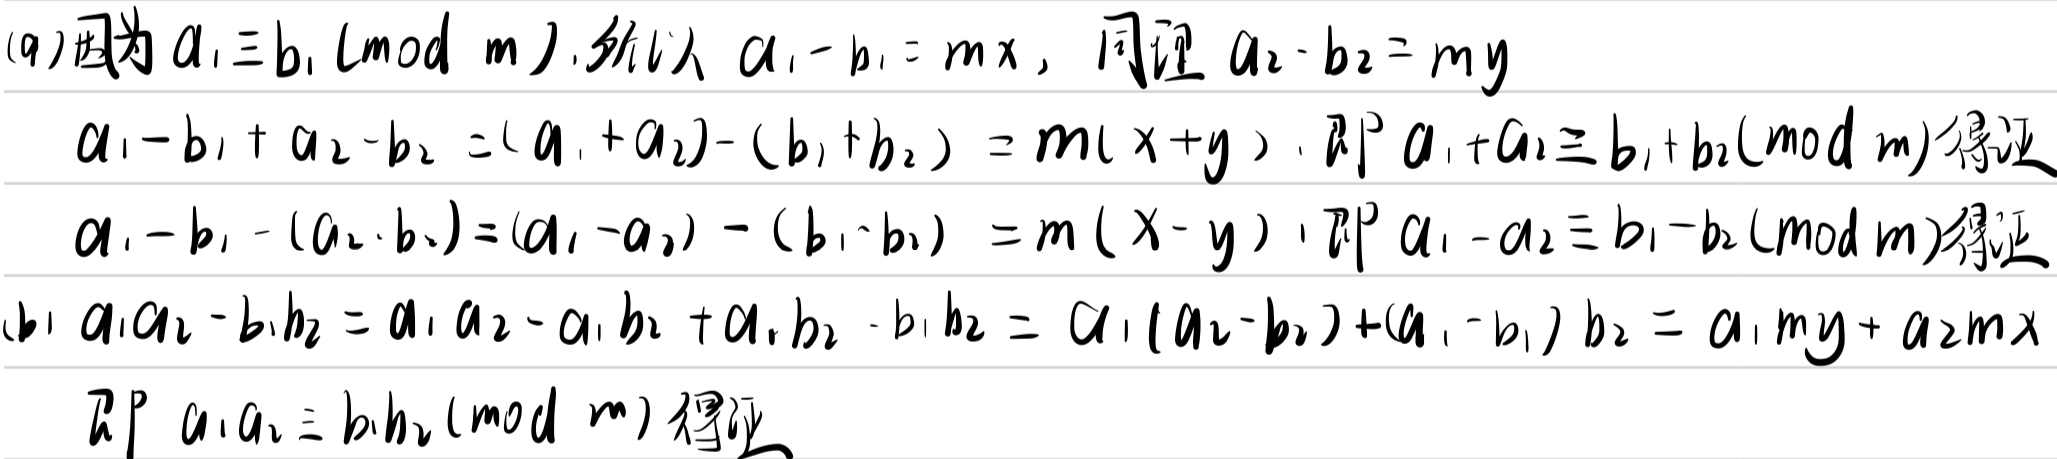 (a)因为 a₁≡b₁(mod m),所以 a₁-b₁=mx, 同理 a₂-b₂=my
a₁-b₁+a₂-b₂=(a₁+a₂)-(b₁+b₂)=m(x+y),即 a₁+a₂≡b₁+b₂(mod m)得证
a₁-b₁-(a₂-b₂)=(a₁-a₂)-(b₁-b₂)=m(x-y),即 a₁-a₂≡b₁-b₂(mod m)得证
(b) a₁a₂-b₁b₂=a₁a₂-a₁b₂+a₁b₂-b₁b₂=a₁(a₂-b₂)+(a₁-b₁)b₂=a₁my+a₂mx
即 a₁a₂≡b₁b₂(mod m)得证